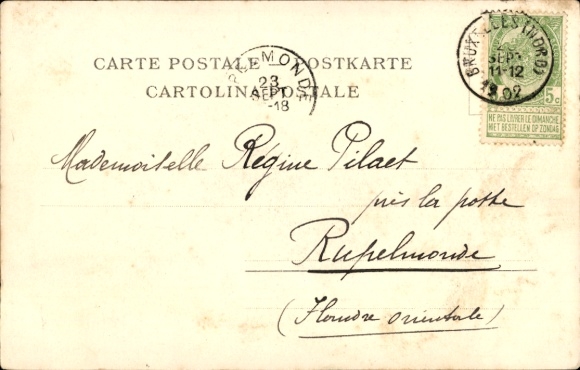 CARTE POSTALE — POSTKARTE
CARTOLINA POSTALE
RUPELMONDE
23
SEPT
-18
BRUXELLES (NORD)
SEPT
11-12
1902
5c
NE PAS LIVRER LE DIMANCHE
NIET BESTELLEN OP ZONDAG
Mademoiselle Régine Pilaet
près la poste
Rupelmonde
(Flandre orientale)